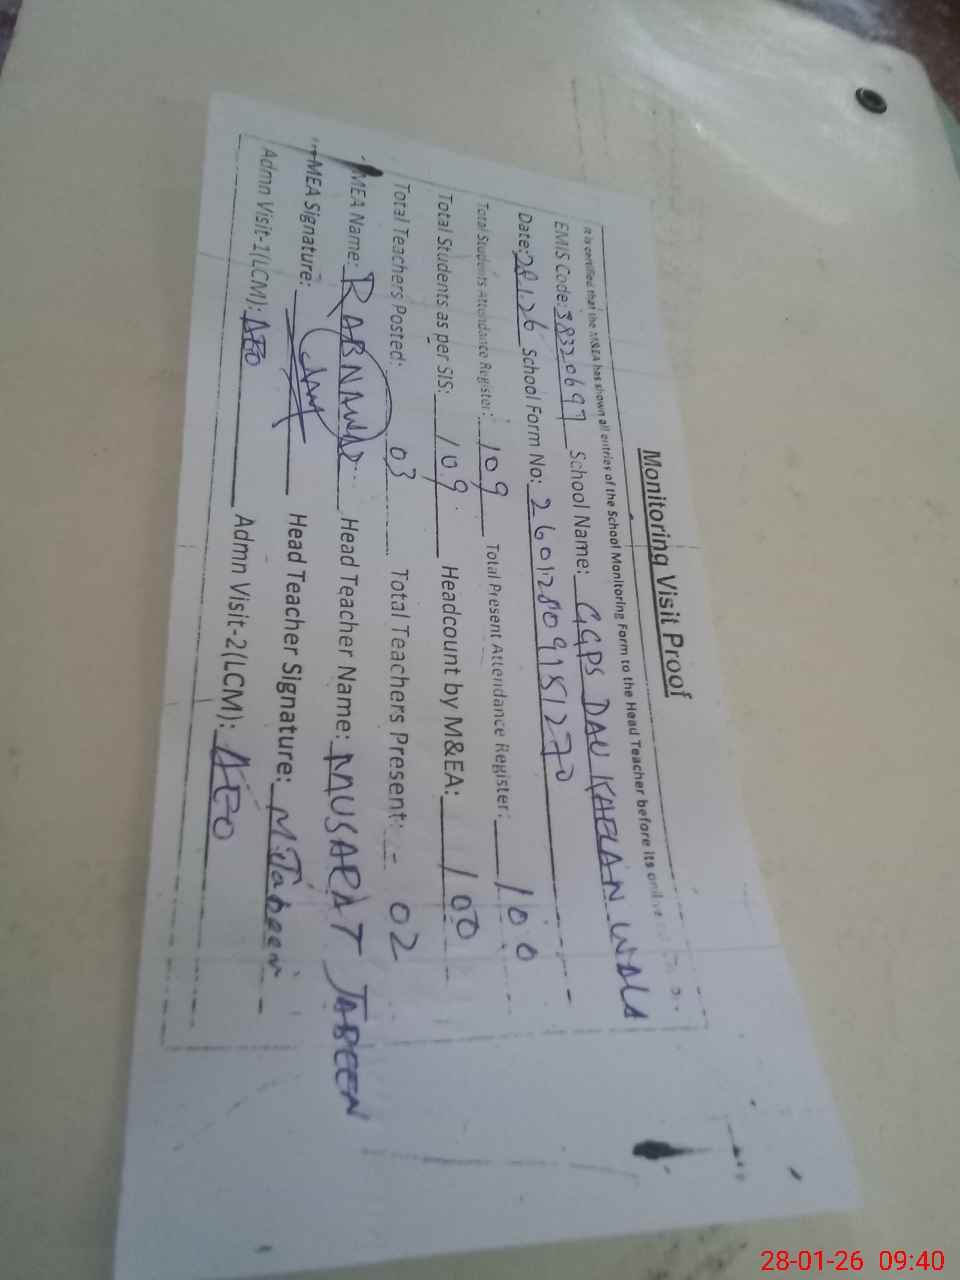 Monitoring Visit Proof
It is certified that the M&EA has shown all entries of the School Monitoring Form to the Head Teacher before its
EMIS Code: 38320697 School Name: GGPS DAU KAHLAN WALA
Date: 28.1.26 School Form No: 26012809151270
Total Students Attendance Register: 109 Total Present Attendance Register: 100
Total Students as per SIS: 109 Headcount by M&EA: 100
Total Teachers Posted: 03 Total Teachers Present: 02
MEA Name: RABNAWAZ Head Teacher Name: MUSARAT JABEEN
MEA Signature: Head Teacher Signature: M.Jabeen
Admn Visit-1(LCM): AEO Admn Visit-2(LCM): AEO
28-01-26 09:40